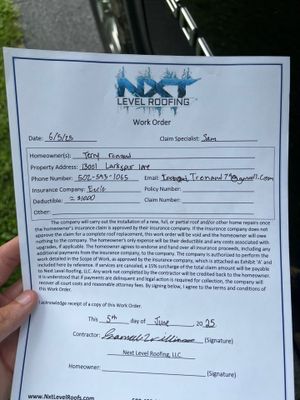 NXT
LEVEL ROOFING
Work Order
Date: 6/5/25 Claim Specialist: Sam
Homeowner(s): Terry Trenand
Property Address: 13001 Larkspur
Phone Number: 502-593-1065 Email:
Insurance Company: Erie Policy Number:
Deductible: $1000 Claim Number:
Other:
The company will carry out the installation of a new, full, or partial roof and/or other home repairs once
the homeowner's insurance claim is approved by their insurance company. If the insurance company does not
approve the claim for a complete roof replacement, this work order will be void and the homeowner will owe
nothing to the company. The homeowner's only expense will be their deductible and any costs associated with
upgrades, if applicable. The homeowner agrees to endorse and hand over all insurance proceeds, including any
additional payments from the insurance company, to the company. The company is authorized to perform
the work detailed in the Scope of Work, as approved by the insurance company, which is attached as Exhibit 'A' and
included here by reference. If services are canceled, a 15% surcharge of the total claim amount will be payable
to Next Level Roofing, LLC. Any work not completed by the contractor will be credited back to the homeowner.
It is understood that if payments are delinquent and legal action is required for collection, the company will
recover all court costs and reasonable attorney fees. By signing below, I agree to the terms and conditions of
this Work Order.
I acknowledge receipt of a copy of this Work Order.
This 5th day of June 2025.
Contractor: (Signature)
Next Level Roofing, LLC
Homeowner: (Signature)
www.NxtLevelRoofs.com